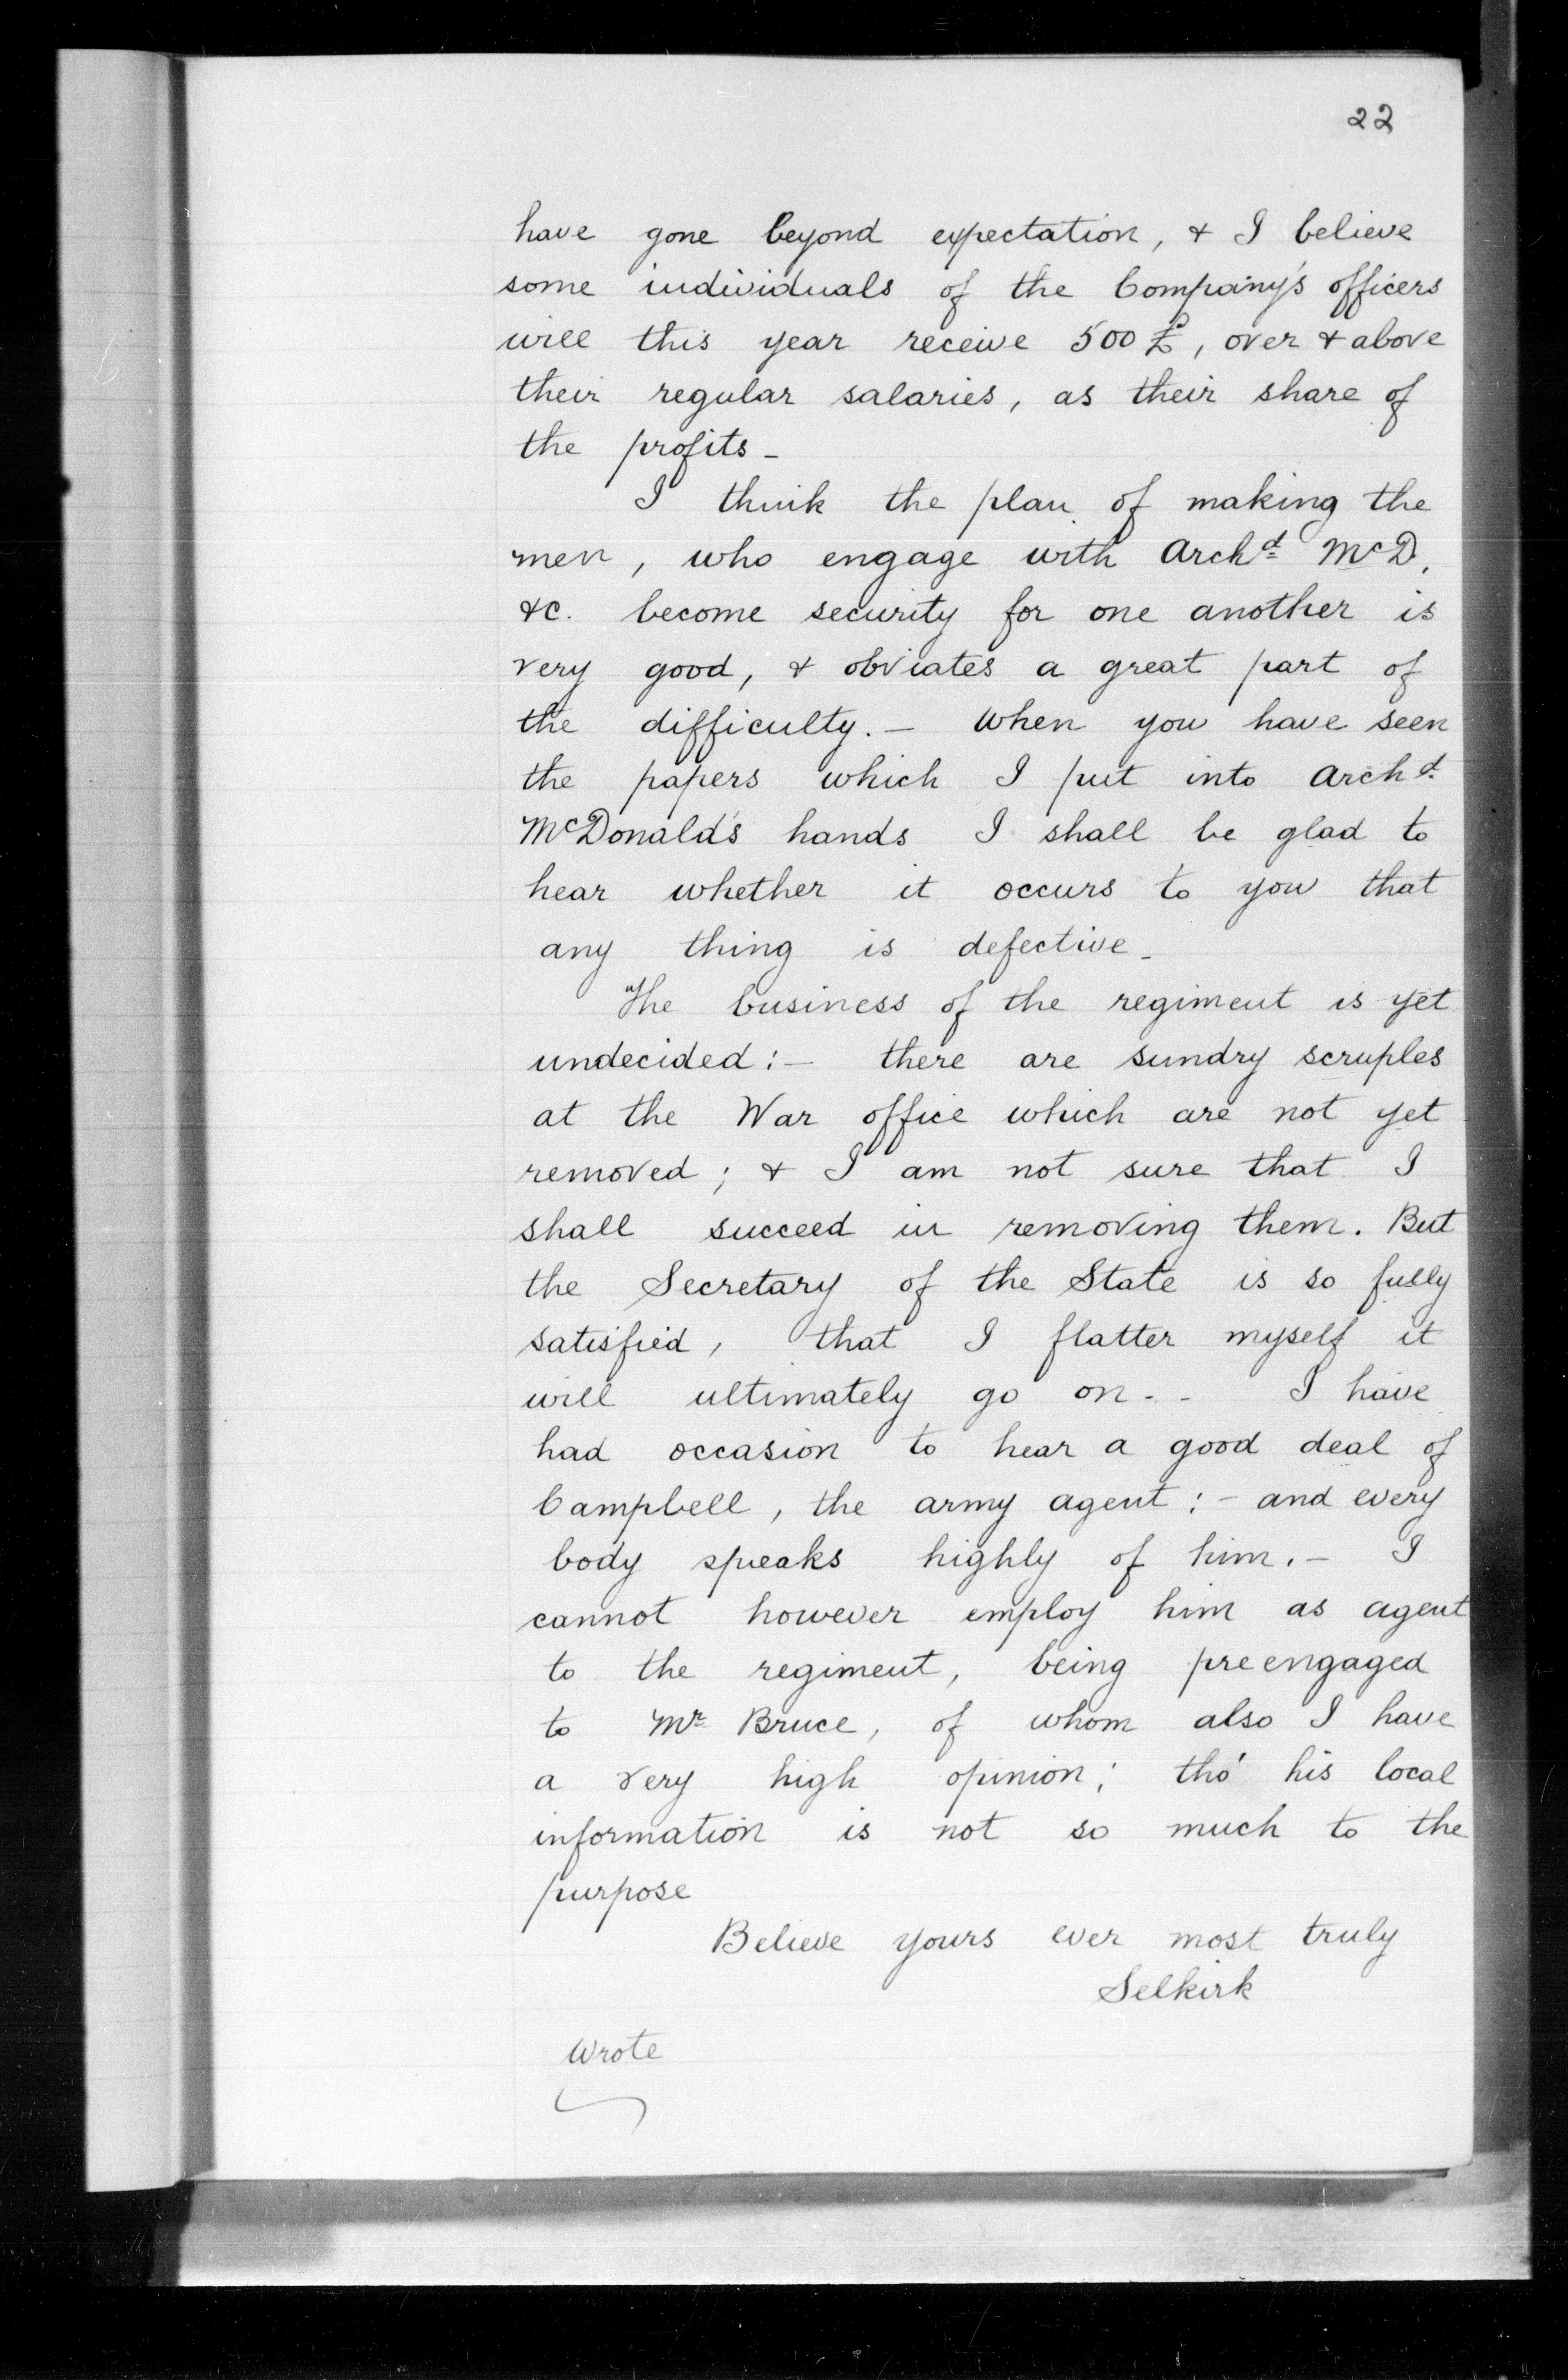 22
have gone beyond expectation, & I believe
some individuals of the Company's officers
will this year receive 500 £, over & above
their regular salaries, as their share of
the profits _
I think the plan of making the
men, who engage with Archd McD,
&c. become security for one another is
very good, & obviates a great part of
the difficulty. — When you have seen
the papers which I put into Archd
McDonald's hands I shall be glad to
hear whether it occurs to you that
any thing is defective _
The business of the regiment is yet
undecided: — there are sundry scruples
at the War office which are not yet
removed; & I am not sure that I
shall succeed in removing them. But
the Secretary of the State is so fully
satisfied, that I flatter myself it
will ultimately go on - - I have
had occasion to hear a good deal of
Campbell, the army agent: - and every
body speaks highly of him. — I
cannot however employ him as agent
to the regiment, being preengaged
to Mr Bruce, of whom also I have
a very high opinion; tho' his local
information is not so much to the
purpose
Believe yours ever most truly
Selkirk
Wrote